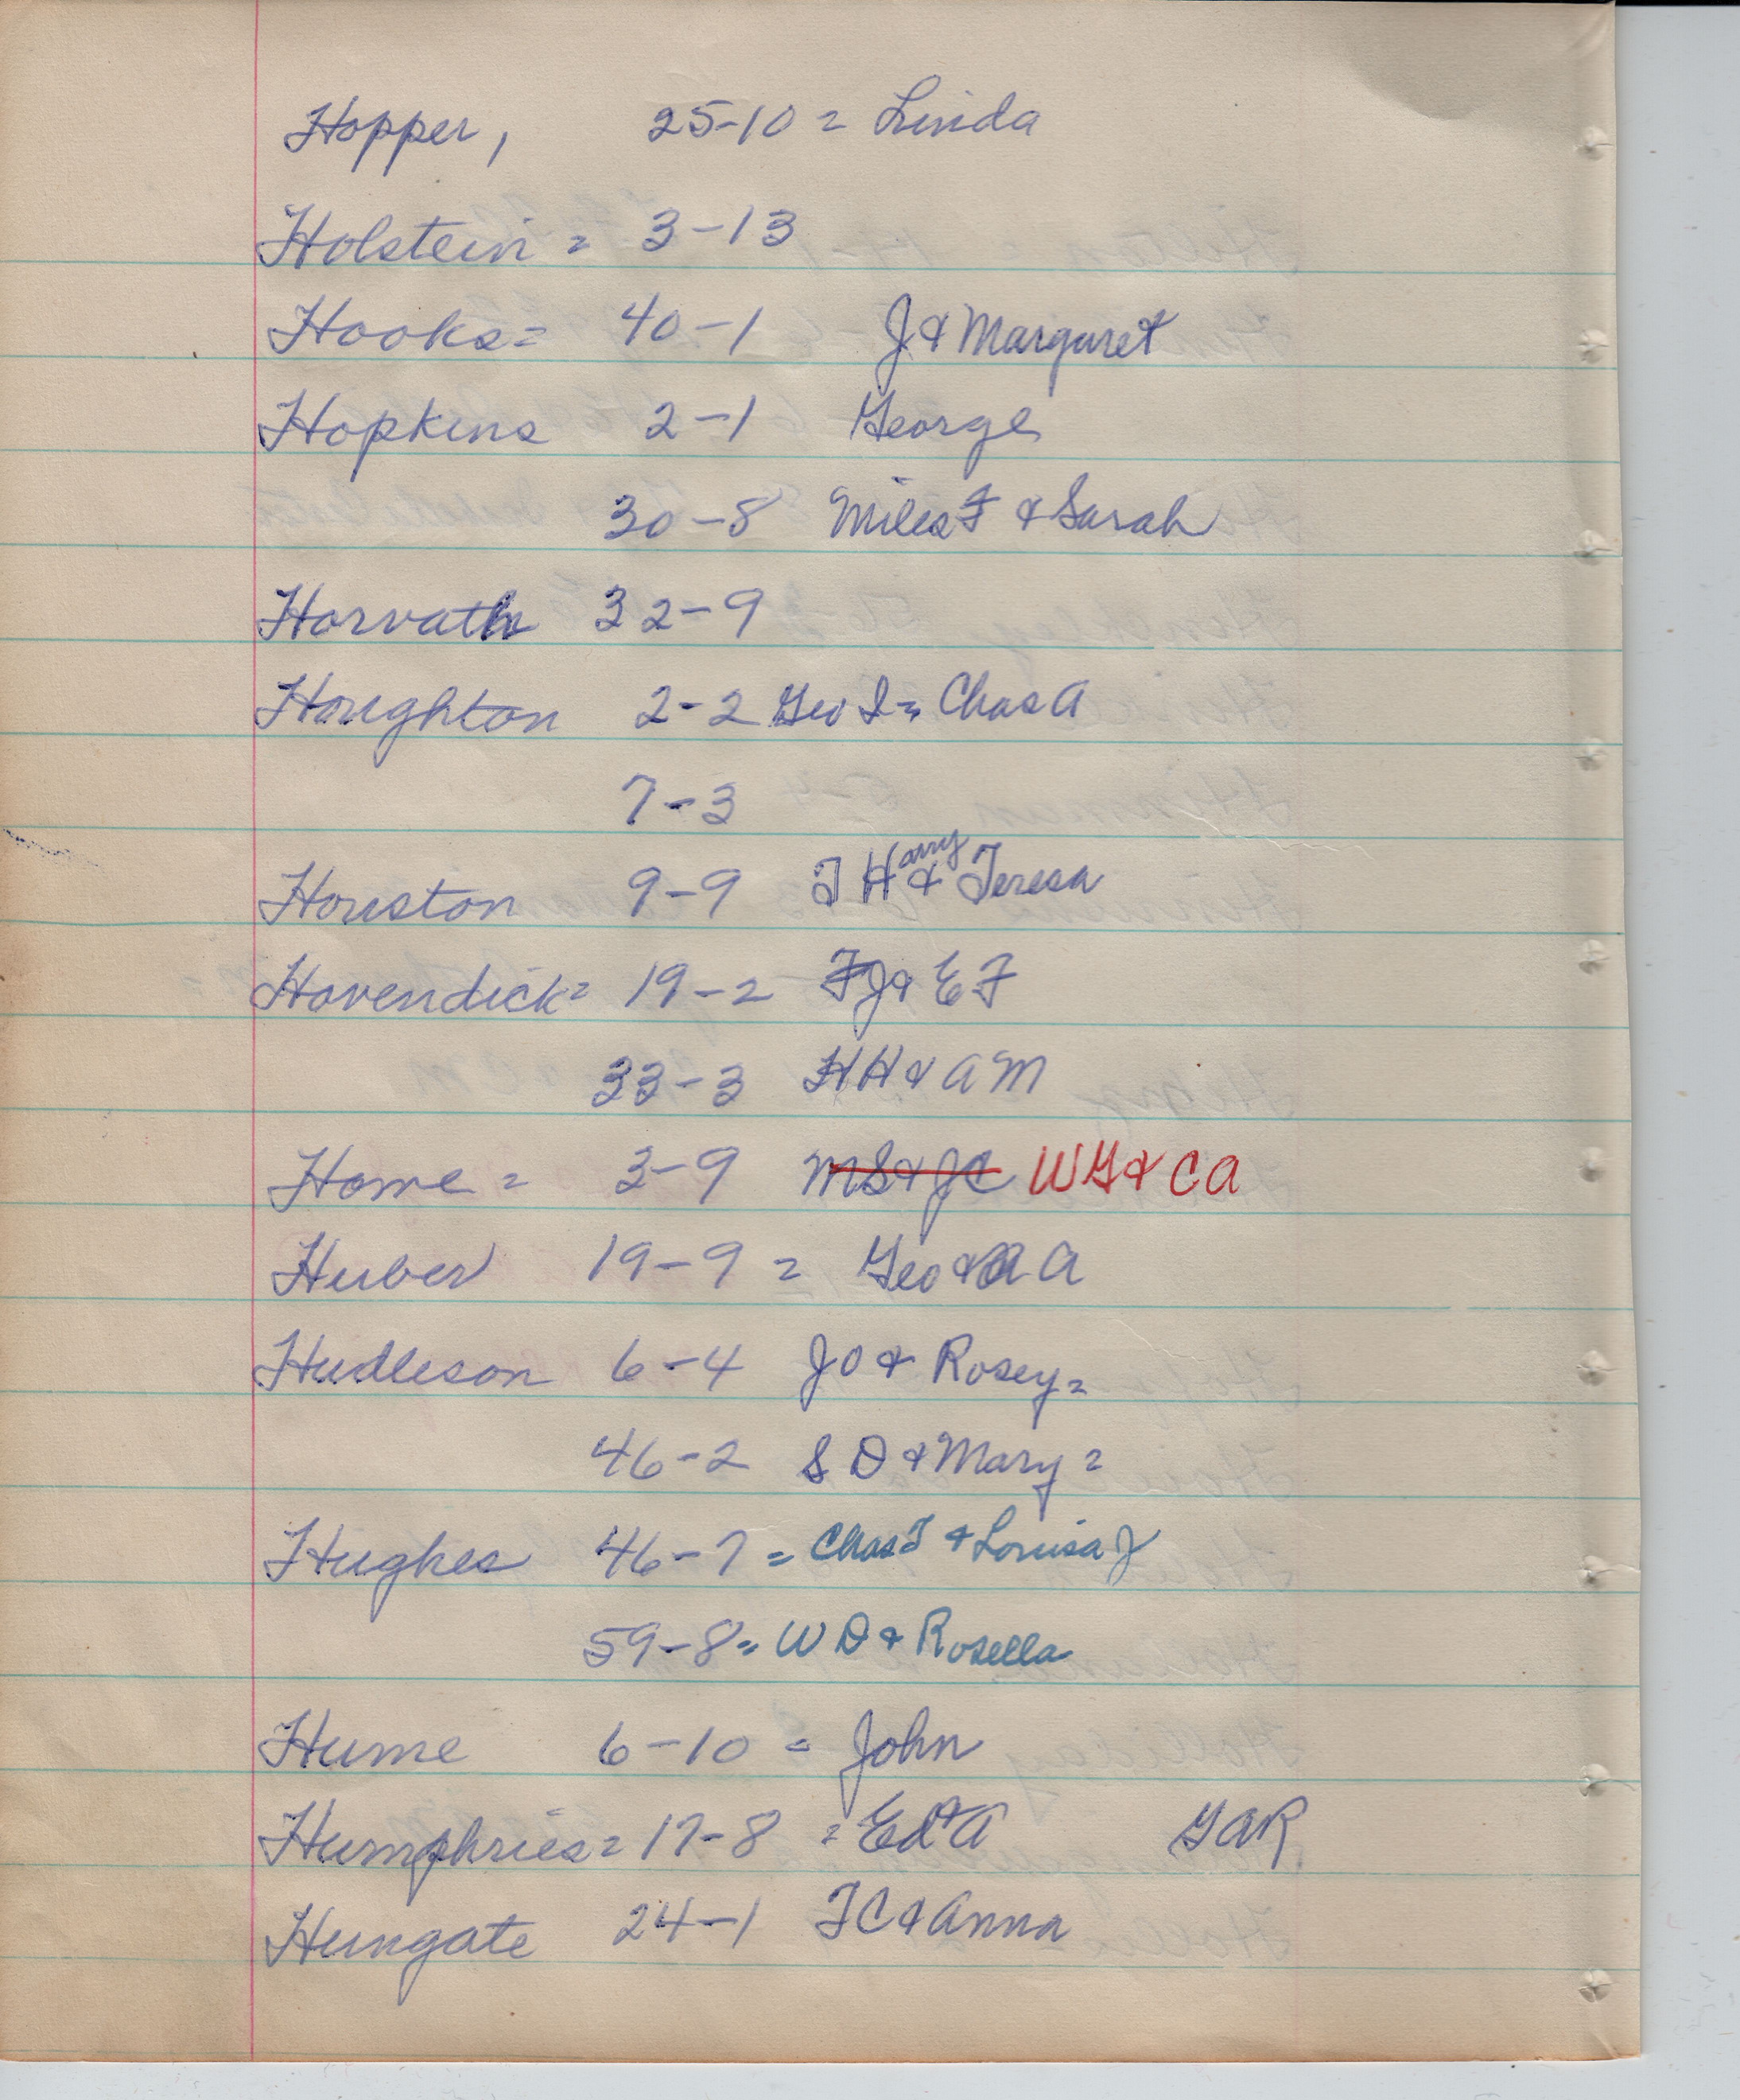 Hopper, 25-10 = Linda
Holstein = 3-13
Hooks = 40-1 J & Margaret
Hopkins 2-1 George
30-8 Miles F & Sarah
Horvath 32-9
Houghton 2-2 Geo I = Chas A
7-3
Houston 9-9 T Harry & Teresa
Hovendick = 19-2 FJ & E F
33-3 HH & A M
Howe = 3-9 MS & JC WG & C A
Huber 19-9 = Geo & A
Hudleson 6-4 J O & Rosey =
46-2 S D & Mary =
Hughes 46-7 = Chas T & Louisa J
59-8 = W D & Rosella
Hume 6-10 = John
Humphries = 17-8 = Ed & A GAR
Hungate 24-1 T C & Anna